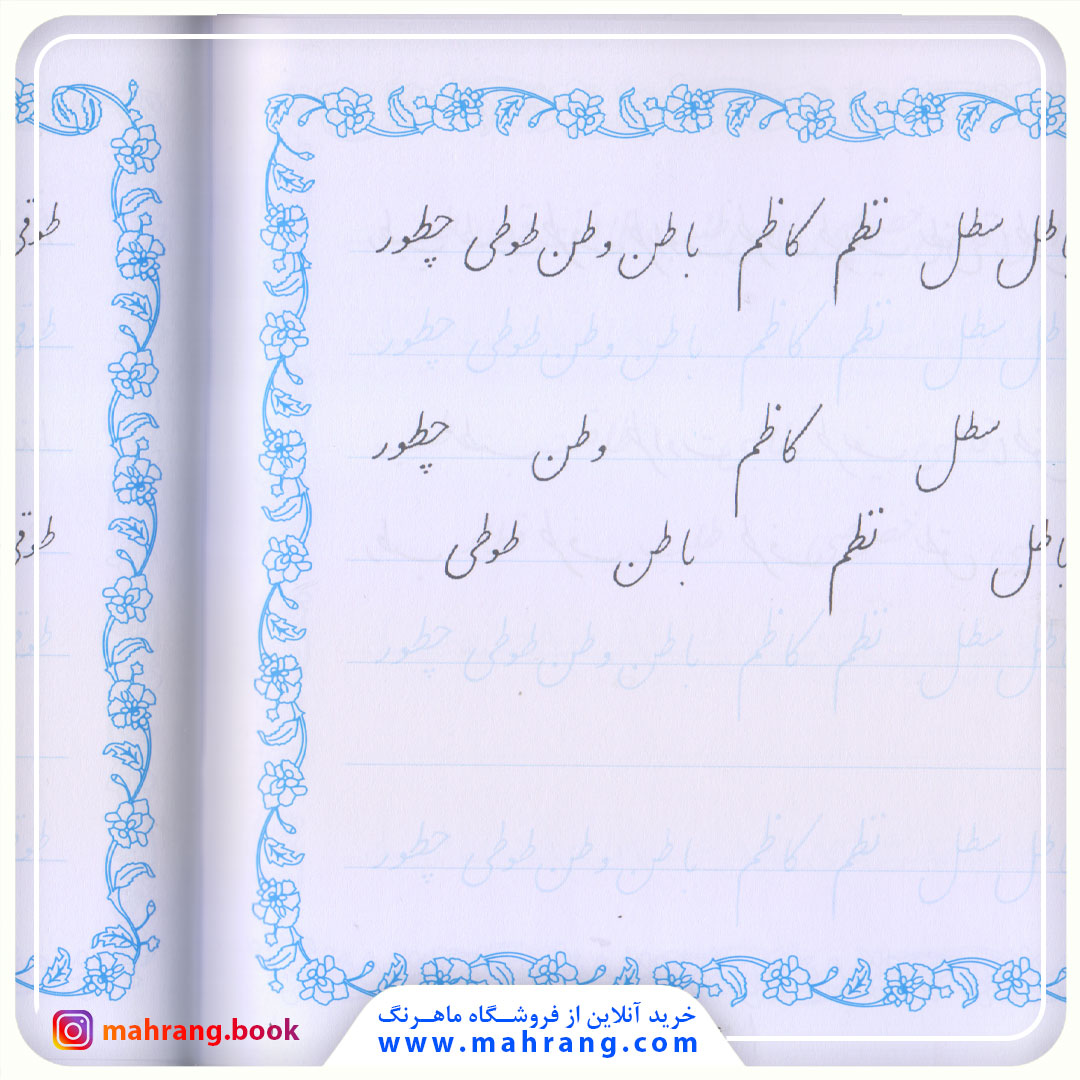 باطل سطل نظم کاظم باطن وطن طوطی چطور
باطل سطل نظم کاظم باطن وطن طوطی چطور
سطل کاظم وطن چطور
باطل نظم باطن طوطی
باطل سطل نظم کاظم باطن وطن طوطی چطور
باطل سطل نظم کاظم باطن وطن طوطی چطور
خرید آنلاین از فروشگاه ماهرنگ
www.mahrang.com
mahrang.book